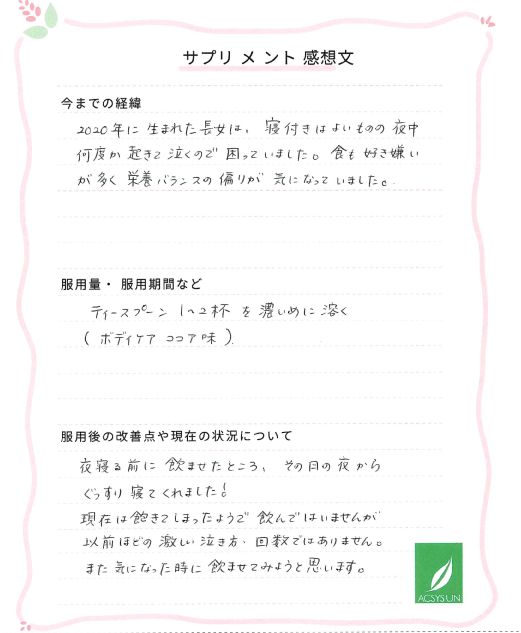 サプリメント 感想文
今までの経緯
2020年に生まれた長女は、寝付きはよいものの夜中
何度か起きて泣くので困っていました。食も好き嫌い
が多く栄養バランスの偏りが気になっていました。
服用量・服用期間など
ティースプーン1〜2杯を濃いめに溶く
(ボディケア ココア味)
服用後の改善点や現在の状況について
夜寝る前に飲ませたところ、その日の夜から
ぐっすり寝てくれました!
現在は飽きてしまったようで飲んではいませんが
以前ほどの激しい泣き方・回数ではありません。
また気になった時に飲ませてみようと思います。
ACSYSUN